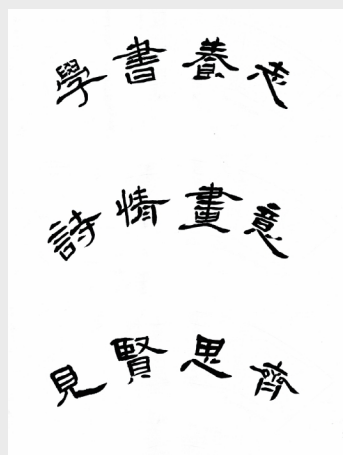 學書養志
詩情畫意
見賢思齊